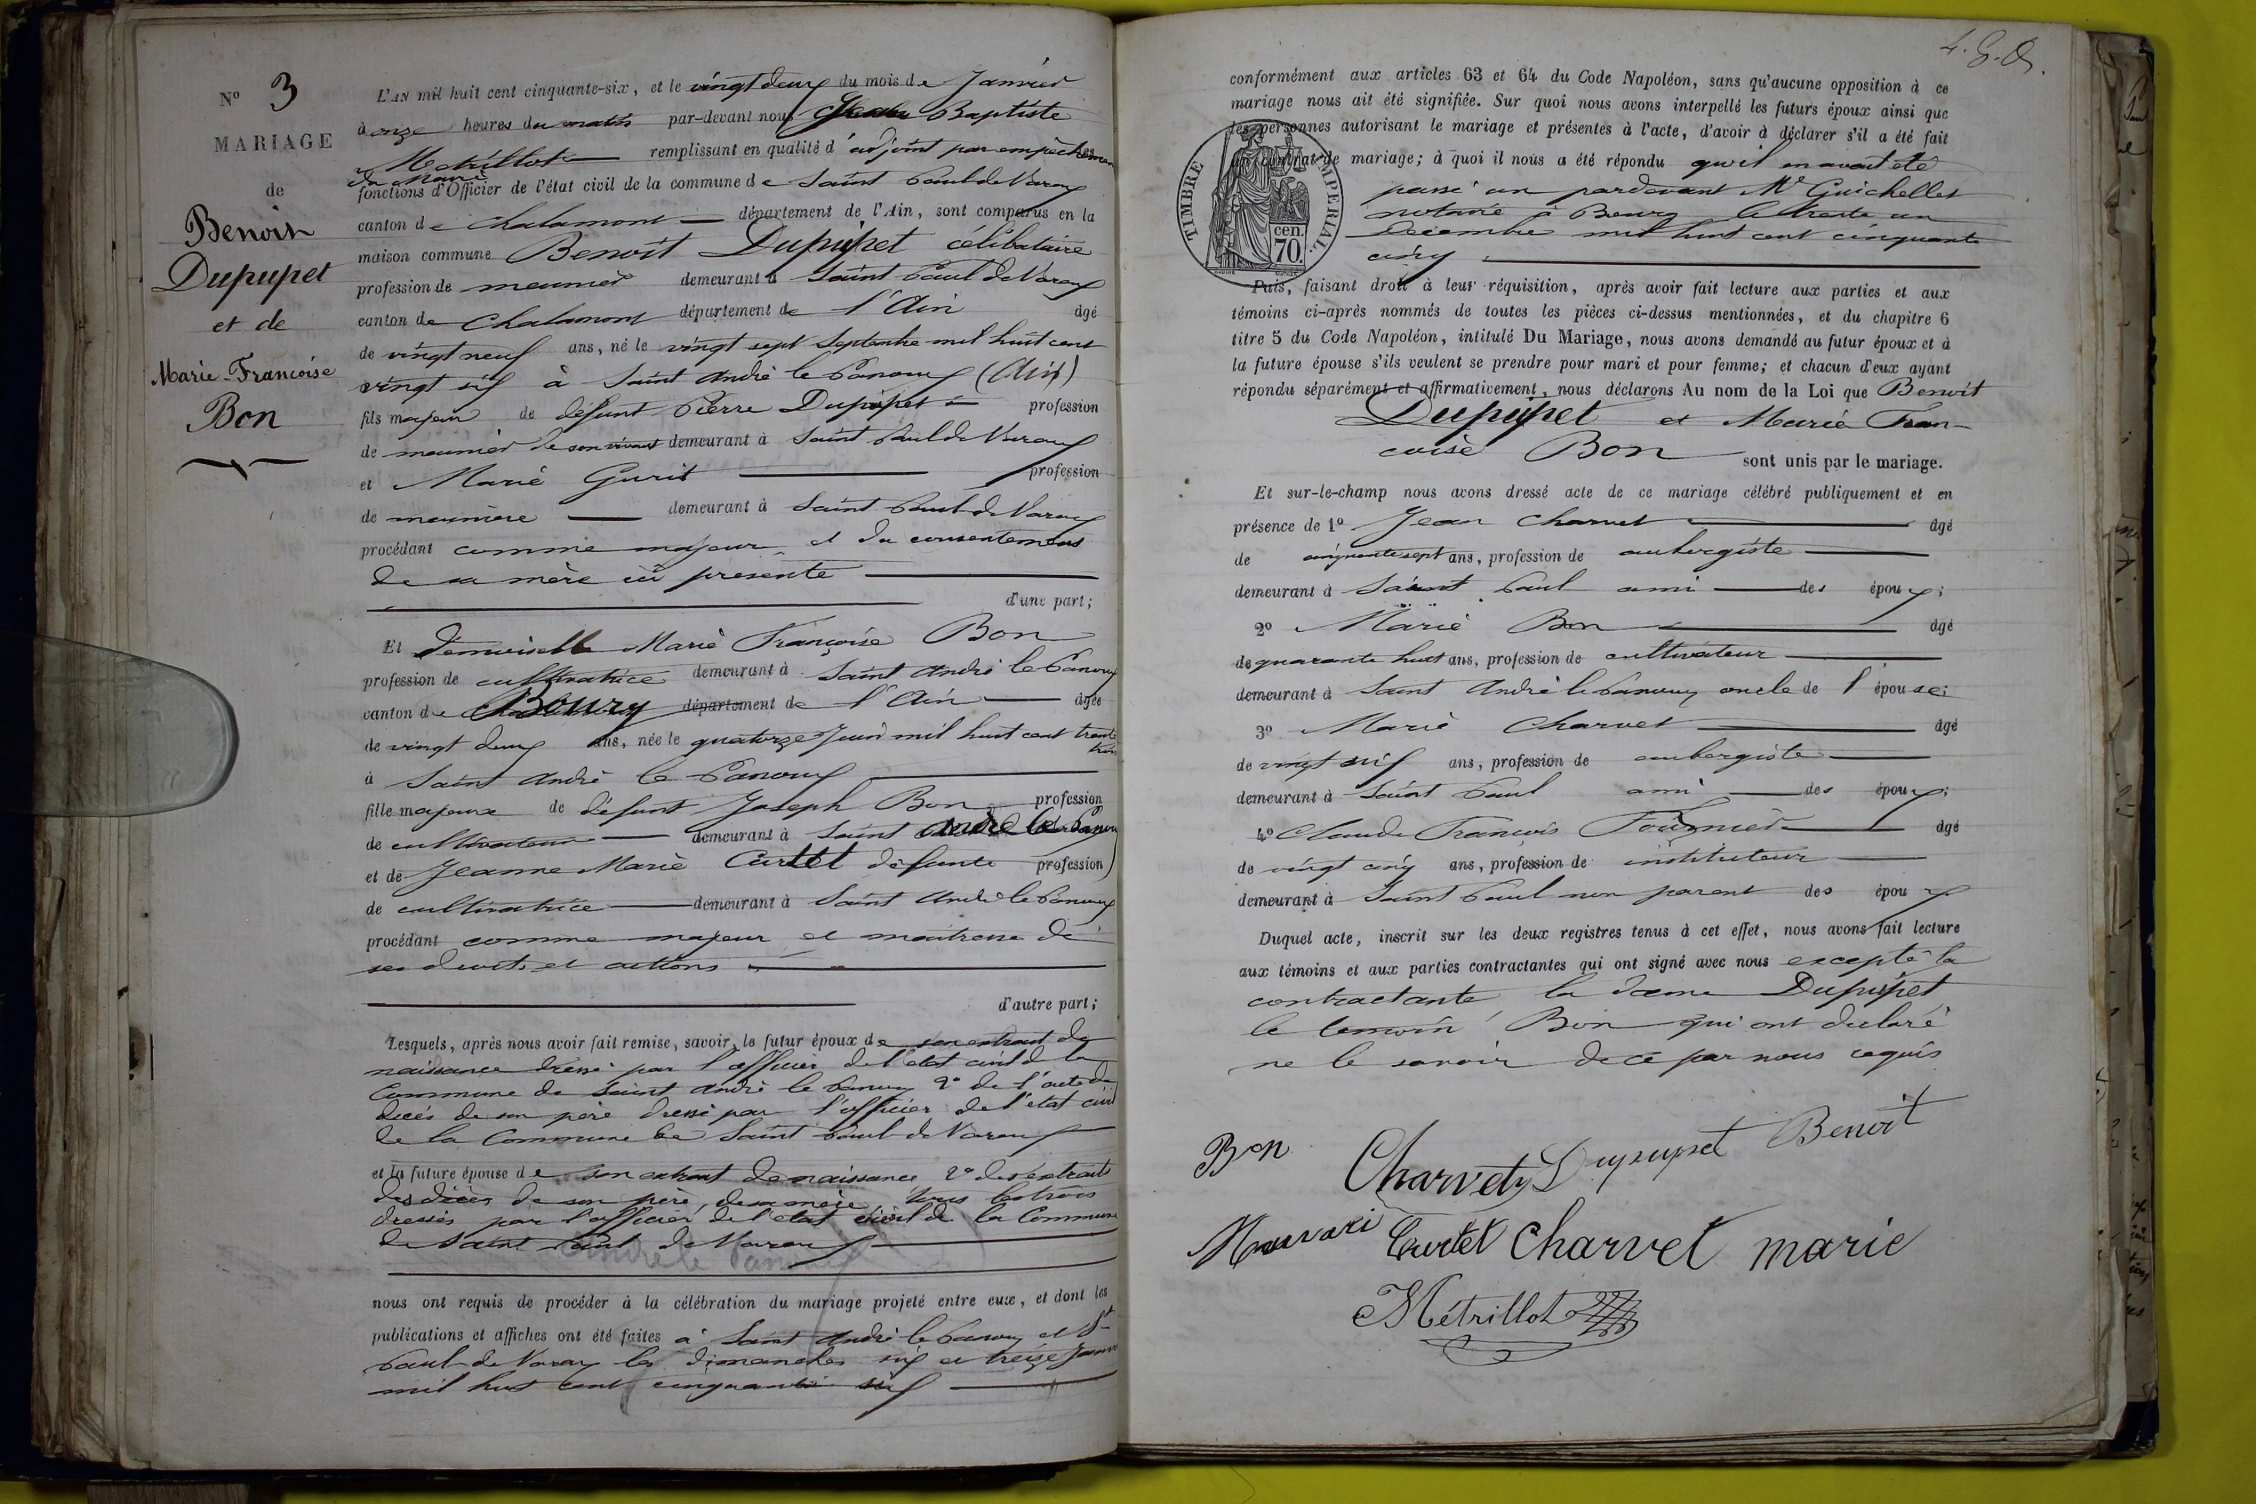 N° 3
MARIAGE
de
Benoit
Dupupet
et de
Marie-Françoise
Bon
L'AN mil huit cent cinquante-six, et le vingt deux du mois de Janvier
à onze heures du matin par-devant nous Jean Baptiste
Métrillot remplissant en qualité d'adjoint par empêchement les
du Maire
fonctions d'Officier de l'état civil de la commune de Saint Paul de Varax
canton de Chalamont département de l'Ain, sont comparus en la
maison commune Benoit Dupupet célibataire
profession de meunier demeurant à Saint Paul de Varax
canton de Chalamont département de l'Ain âgé
de vingt neuf ans, né le vingt sept Septembre mil huit cent
vingt six à Saint André le Panoux (Ain)
fils majeur de défunt Pierre Dupupet profession
de meunier de son vivant demeurant à Saint Paul de Varax
et Marie Gurit profession
de meunière demeurant à Saint Paul de Varax
procédant comme majeur et du consentement
de sa mère ici présente
d'une part;
Et demoiselle Marie Françoise Bon
profession de cultivatrice demeurant à Saint André le Panoux
canton de Bourg département de l'Ain âgée
de vingt deux ans, née le quatorze Juin mil huit cent trente
trois
à Saint André le Panoux
fille majeure de défunt Joseph Bon profession
de cultivateur demeurant à Saint André le Panoux
et de Jeanne Marie Curtet défunte profession
de cultivatrice demeurant à Saint André le Panoux
procédant comme majeur et maitresse de
ses droits et actions
d'autre part;
Lesquels, après nous avoir fait remise, savoir, le futur époux de son extrait de
naissance dressé par l'officier de l'état civil de la
Commune de Saint André le Panoux 2° de l'acte de
décés de son père dressé par l'officier de l'état civil
de la Commune de Saint Paul de Varax
et la future épouse de son extrait de naissance 2° des extraits
des décès de son père, de sa mère tous les trois
dressés par l'officier de l'état civil de la Commune
de Saint Paul de Varax
André le Panoux
nous ont requis de procéder à la célébration du mariage projeté entre eux, et dont les
publications et affiches ont été faites à Saint André le Panoux et St
Paul de Varax les dimanches six et treize Janvier
mil huit cent cinquante six
conformément aux articles 63 et 64 du Code Napoléon, sans qu'aucune opposition à ce
mariage nous ait été signifiée. Sur quoi nous avons interpellé les futurs époux ainsi que
les personnes autorisant le mariage et présentes à l'acte, d'avoir à déclarer s'il a été fait
un contrat de mariage; à quoi il nous a été répondu qu'il en avait été
passé un pardevant Me Guichellet
notaire à Bourg le trente un
Décembre mil huit cent cinquante
cinq
TIMBRE IMPERIAL.
cen.
70.
Puis, faisant droit à leur réquisition, après avoir fait lecture aux parties et aux
témoins ci-après nommés de toutes les pièces ci-dessus mentionnées, et du chapitre 6
titre 5 du Code Napoléon, intitulé Du Mariage, nous avons demandé au futur époux et à
la future épouse s'ils veulent se prendre pour mari et pour femme; et chacun d'eux ayant
répondu séparément et affirmativement, nous déclarons Au nom de la Loi que Benoit
Dupupet et Marie Fran-
coise Bon sont unis par le mariage.
Et sur-le-champ nous avons dressé acte de ce mariage célébré publiquement et en
présence de 1° Jean Charvet âgé
de cinquante sept ans, profession de aubergiste
demeurant à Saint Paul ami des époux;
2° Marie Bon âgé
de quarante huit ans, profession de cultivateur
demeurant à Saint André le Panoux oncle de l'épouse;
3° Marie Charvet âgé
de vingt six ans, profession de aubergiste
demeurant à Saint Paul ami des époux;
4° Claude François Fournier âgé
de vingt cinq ans, profession de instituteur
demeurant à Saint Paul non parent des époux
Duquel acte, inscrit sur les deux registres tenus à cet effet, nous avons fait lecture
aux témoins et aux parties contractantes qui ont signé avec nous excepté la
contractante, la dame Dupupet
le temoin Bon qui ont declaré
ne le savoir de ce par nous requis
Bon Charvet Dupupet Benoit
Curtet Charvet marie
Métrillot